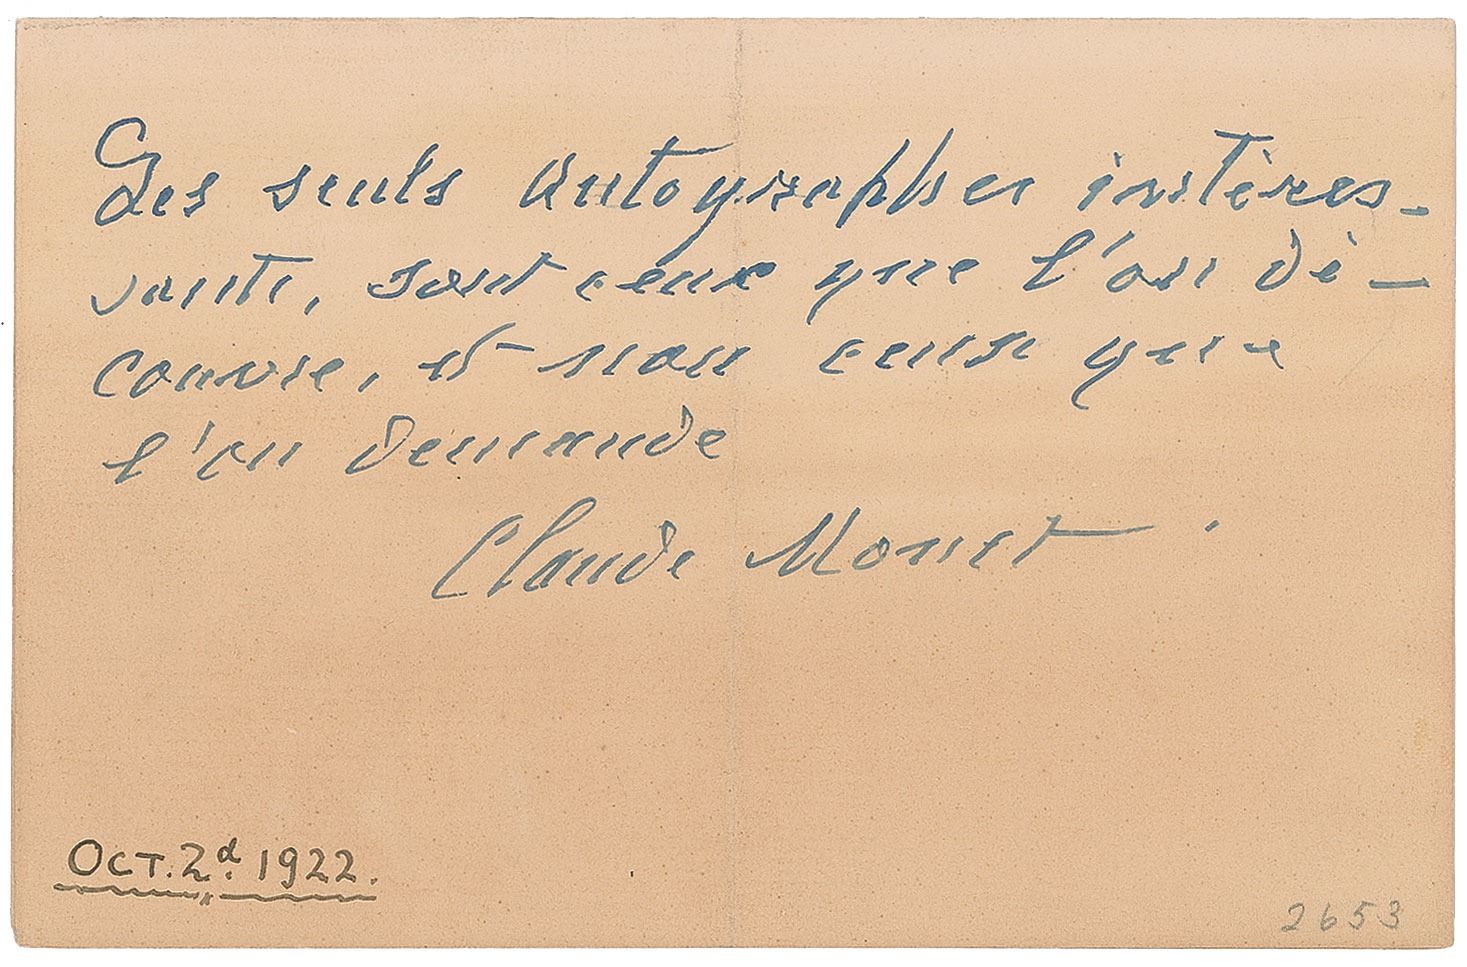 Les seuls autographes intéres-
sants, sont ceux que l'on dé-
couvre, et non ceux que
l'on demande
Claude Monet
OCT. 2d. 1922.
2653